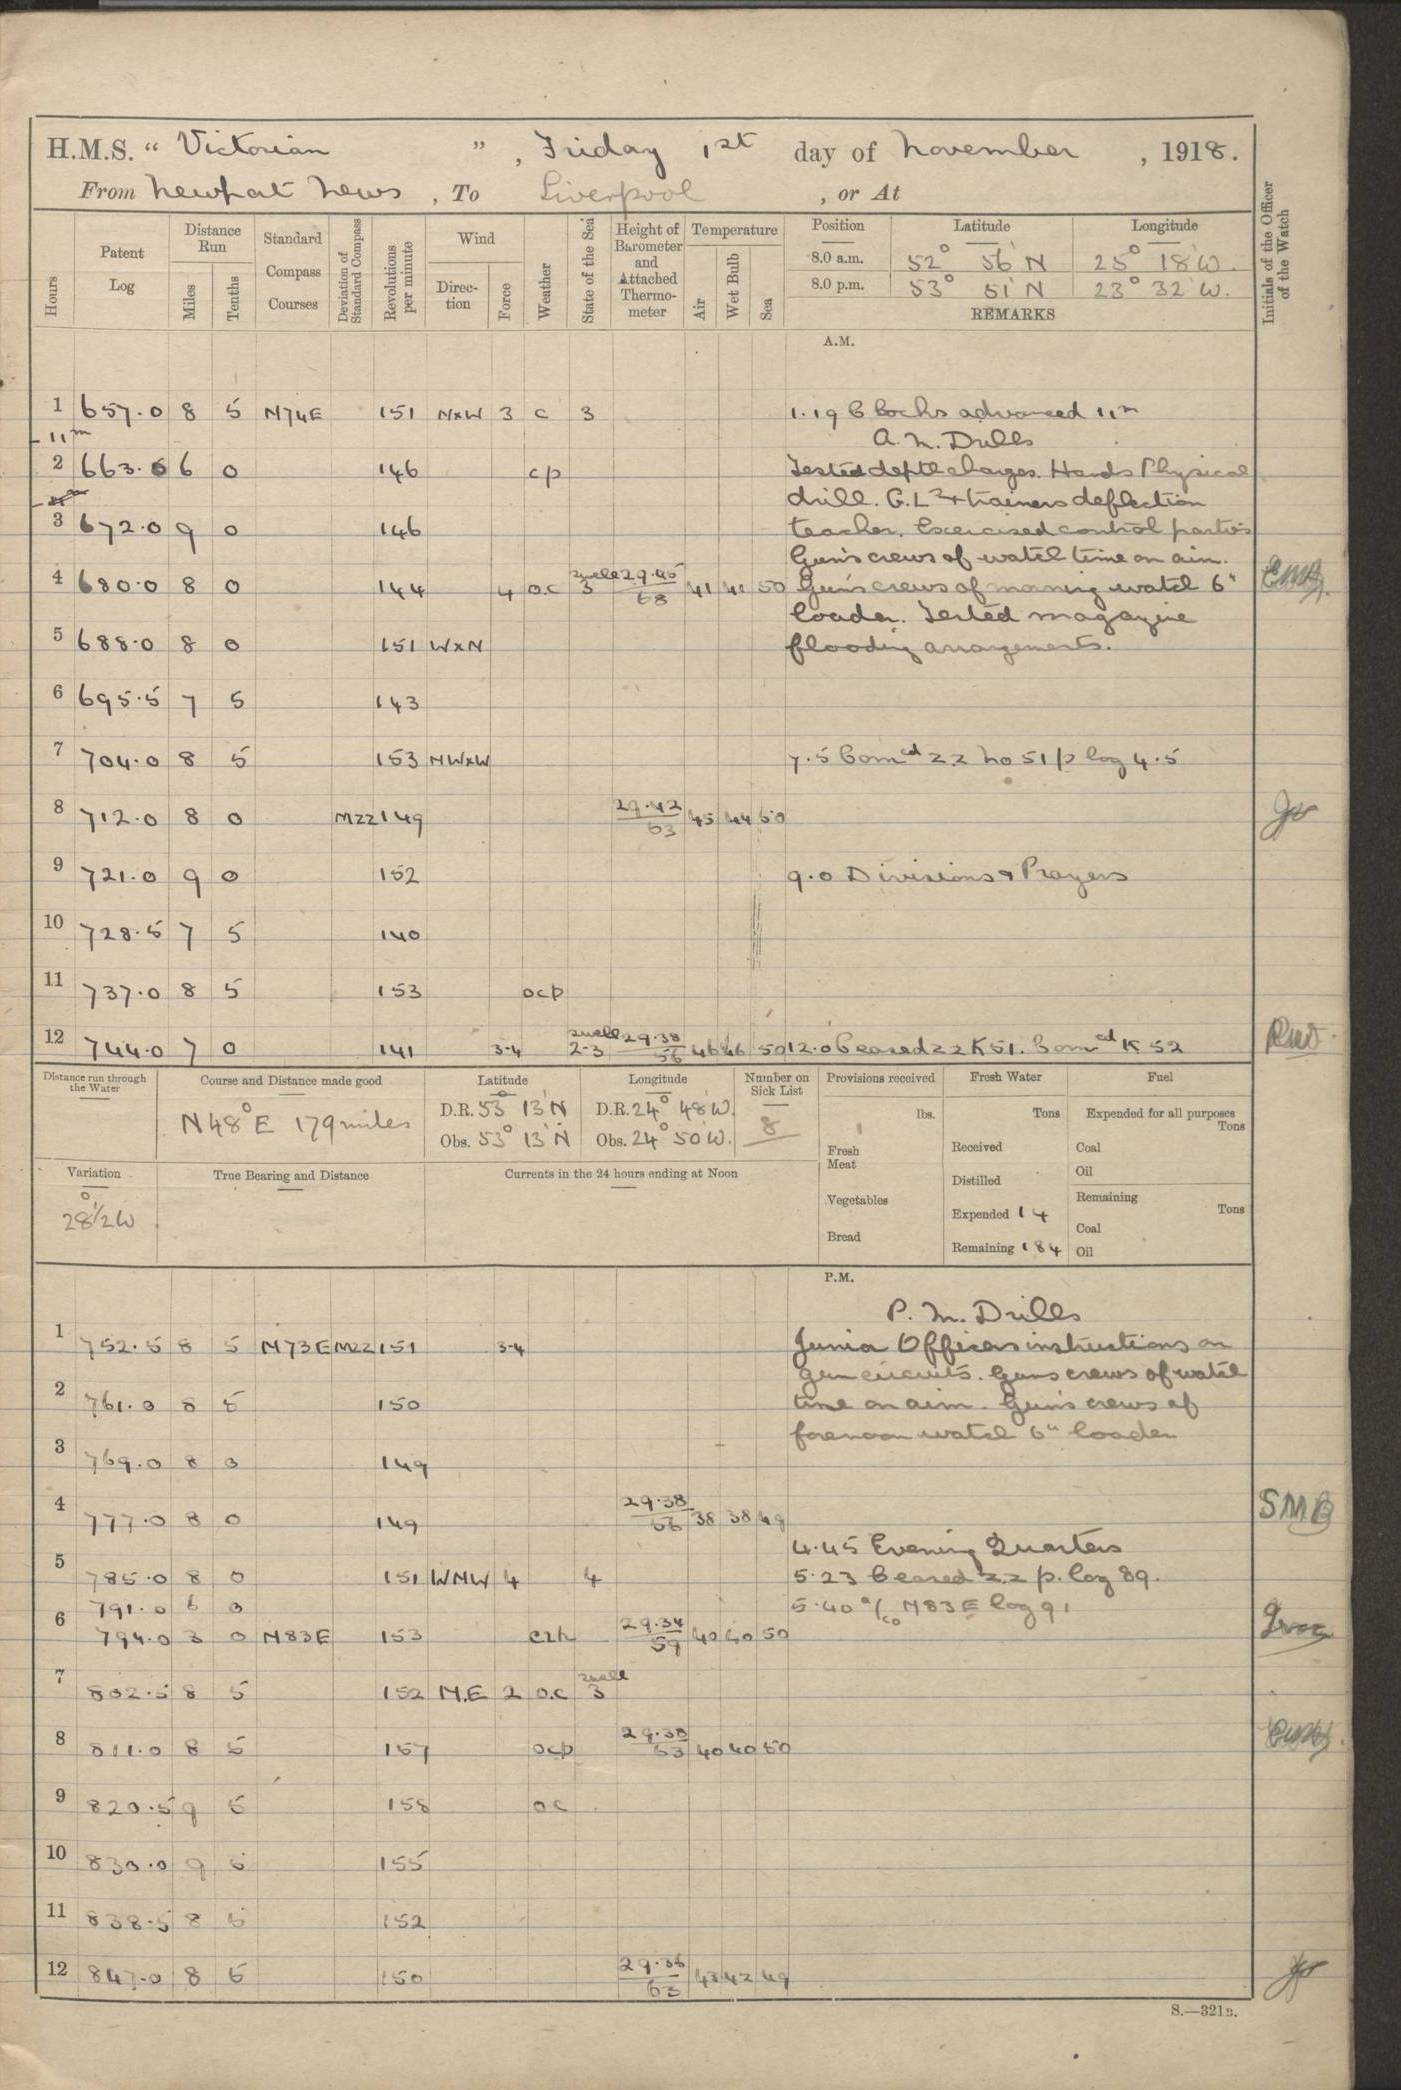 H.M.S. “ Victorian ” , Friday 1st day of November , 1918.
From Newport News , To Liverpool , or At
Hours
Patent Log
Distance Run
Miles
Tenths
Standard Compass Courses
Deviation of Standard Compass
Revolutions per minute
Wind
Direction
Force
Weather
State of the Sea
Height of Barometer and Attached Thermometer
Temperature
Air
Wet Bulb
Sea
Position Latitude Longitude
8.0 a.m. 52° 56' N 25° 18' W.
8.0 p.m. 53° 51' N 23° 32' W.
REMARKS
Initials of the Officer of the Watch
A.M.
1 657.0 8 5 N74E 151 NxW 3 c 3 1.19 Clocks advanced 11m
11m A.M. Drills
2 663.0 6 0 146 cp Tested depth charges. Hands Physical
drill. G.L's + trainers deflection
3 672.0 9 0 146 teacher. Exercised control parties
Guns crews of watch time on aim.
4 680.0 8 0 144 4 o.c swell 3 29.45 / 68 41 41 50 Guns crews of morning watch 6"
loader. Tested magazine
5 688.0 8 0 151 WxN flooding arrangements.
6 695.5 7 5 143
7 704.0 8 5 153 NWxW 7.5 Comced zz No 51 p log 4.5
8 712.0 8 0 Mzz 149 29.42 / 63 45 44 50
9 721.0 9 0 152 9.0 Divisions & Prayers
10 728.5 7 5 140
11 737.0 8 5 153 ocp
12 744.0 7 0 141 3-4 swell 2-3 29.38 / 56 46 46 50 12.0 Ceased zz K51. Comced K 52
Distance run through the Water
Course and Distance made good
N48°E 179 miles
Latitude
D.R. 53° 13' N
Obs. 53° 13' N
Longitude
D.R. 24° 48' W.
Obs. 24° 50' W.
Number on Sick List
8
Provisions received
lbs.
Fresh Meat
Vegetables
Bread
Fresh Water
Tons
Received
Distilled
Expended 14
Remaining 184
Fuel
Expended for all purposes
Tons
Coal
Oil
Remaining
Tons
Coal
Oil
Variation
28½° W
True Bearing and Distance
Currents in the 24 hours ending at Noon
P.M.
P.M. Drills
1 752.5 8 5 N73E Mzz 151 3-4 Junior Officers instructions on
gun circuits. Guns crews of watch
2 761.0 8 5 150 time on aim. Guns crews of
3 769.0 8 0 149 forenoon watch 6" loader
4 777.0 8 0 149 29.38 / 56 38 38 49 SMB
4.45 Evening Quarters
5 785.0 8 0 151 WNW 4 4 5.23 Ceased zz p. log 89.
791.0 6 0 5.40 a/co N83E log 91
6 794.0 3 0 N83E 153 29.34 / 59 40 40 50
7 802.5 8 5 152 N.E 2 o.c swell 3
8 811.0 8 5 157 ocp 29.38 / 53 40 40 50
9 820.5 9 5 158 oc
10 830.0 9 5 155
11 838.5 8 5 152
12 847.0 8 5 150 29.36 / 63 43 42 49
S.—321B.